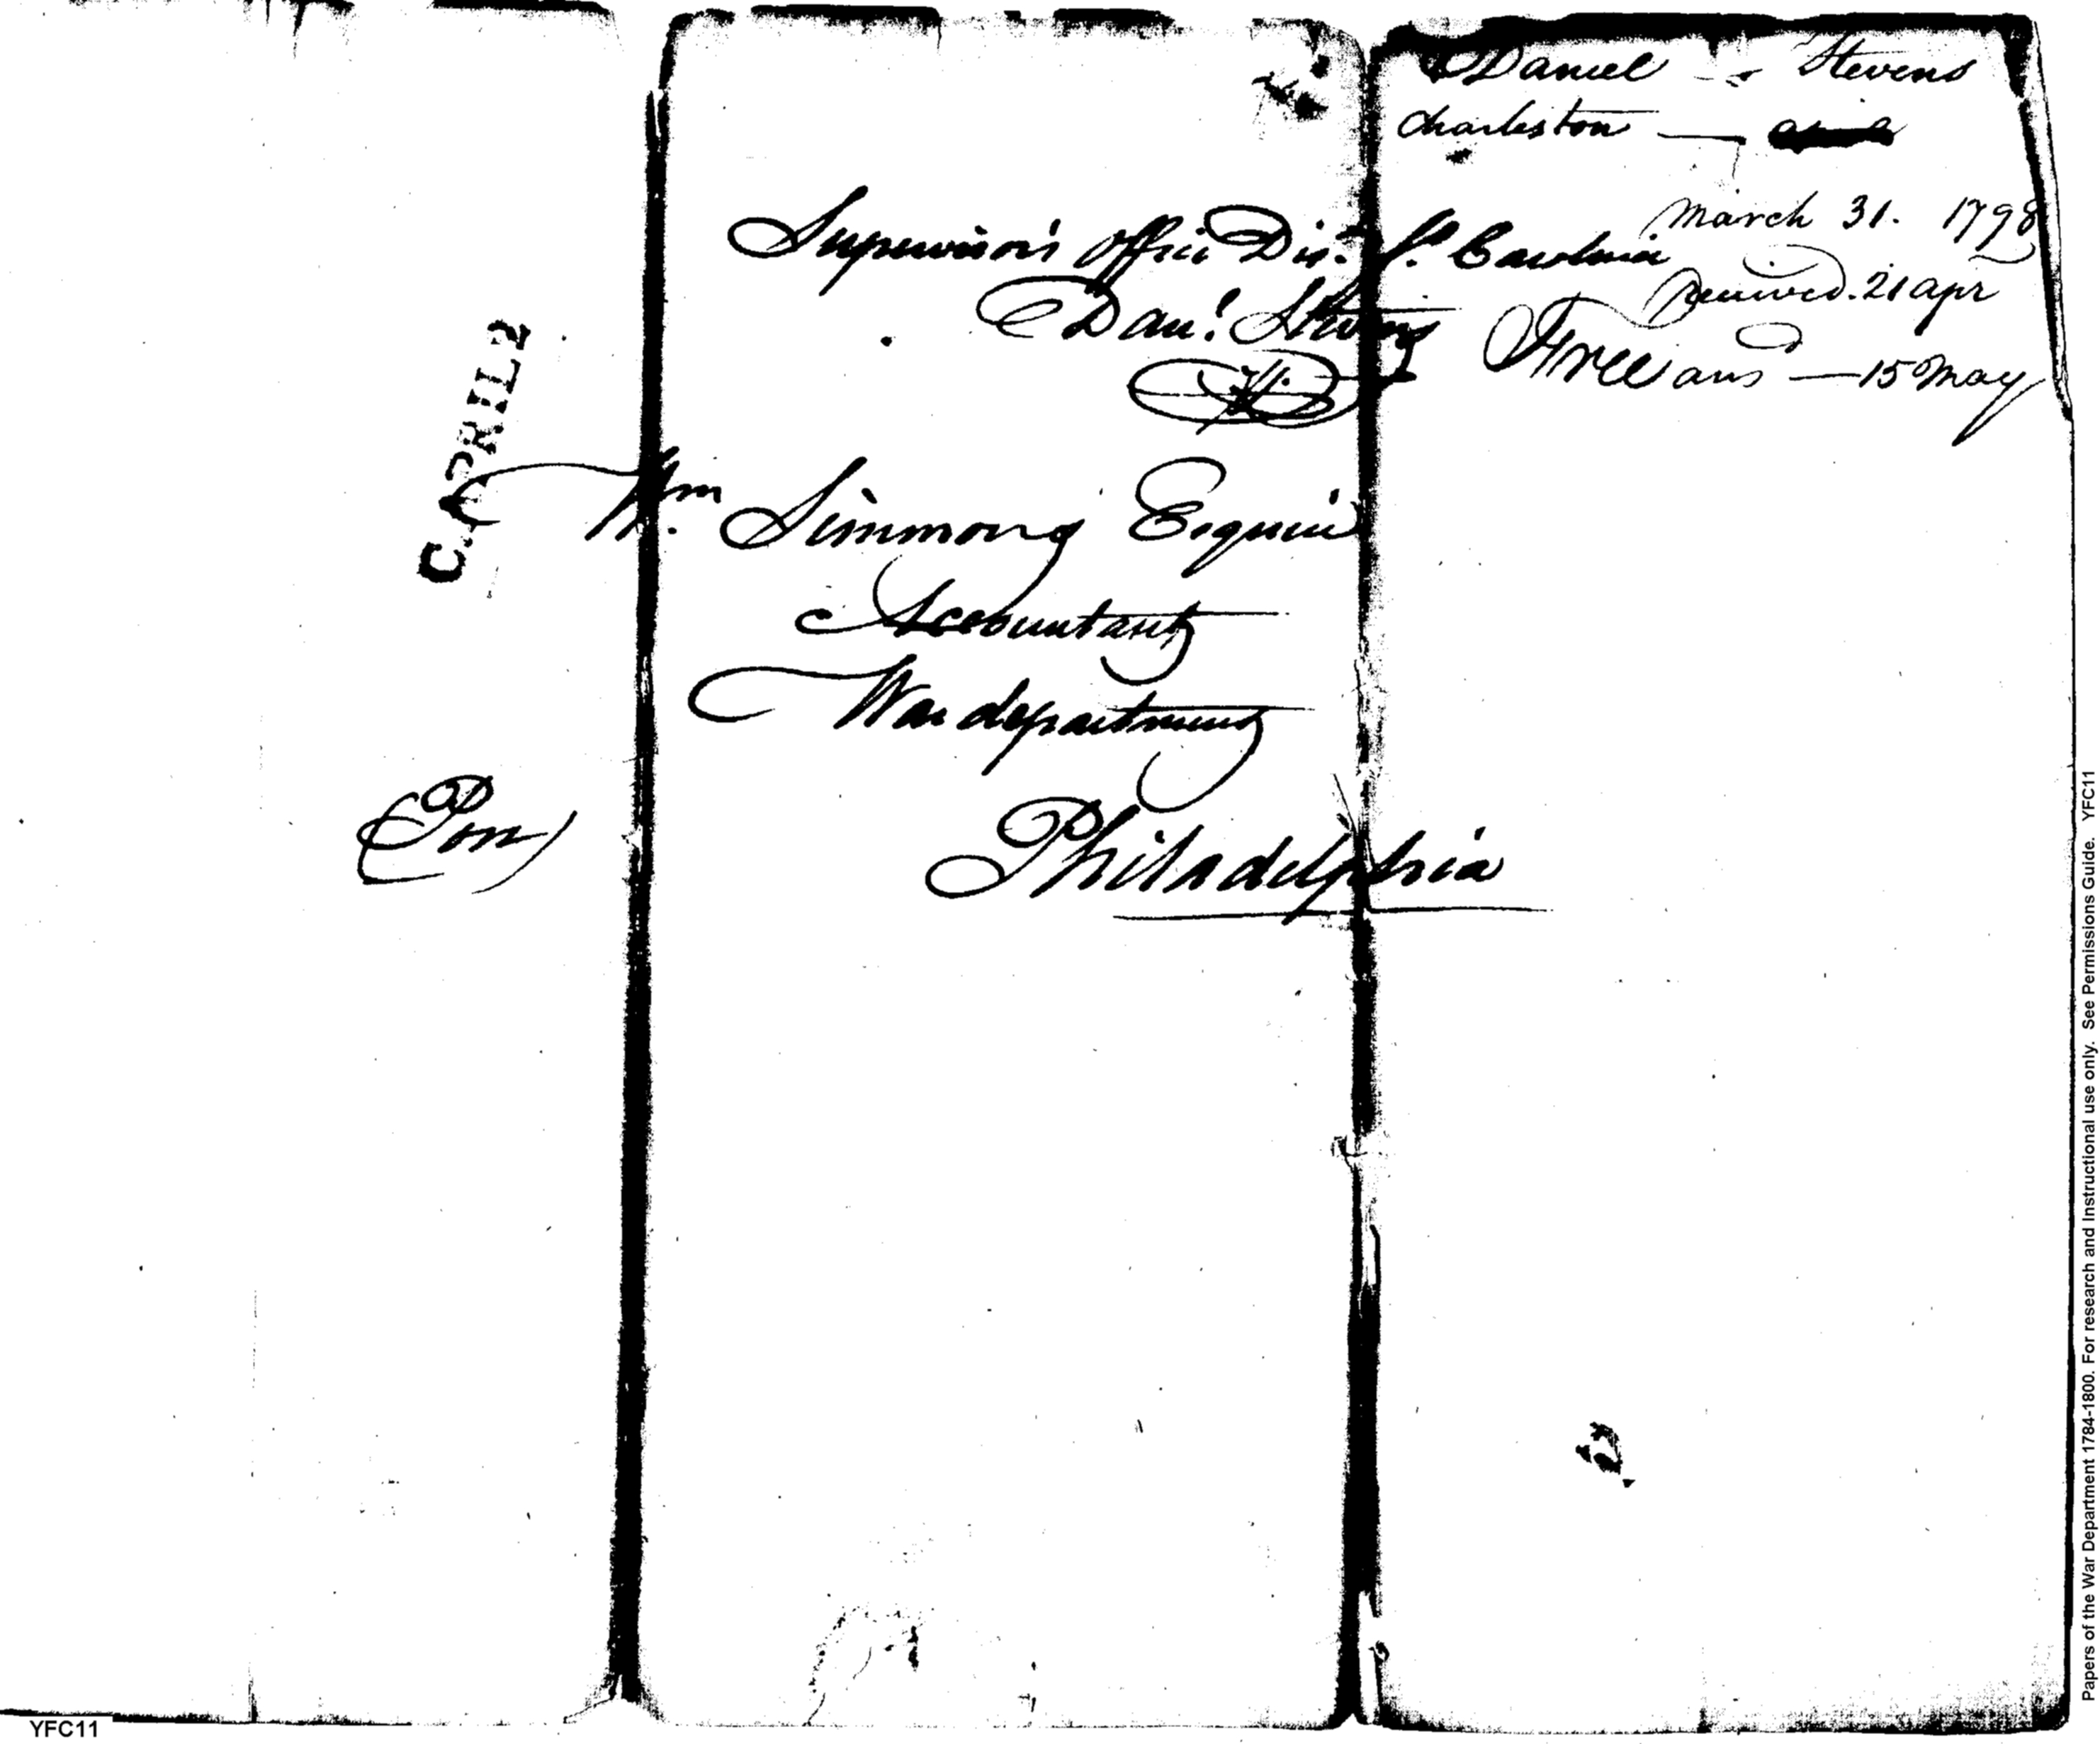 Daniel Stevens
Charleston
March 31. 1798
received. 21 apr
ans — 15 May
Supervisor's Office Dis. S. Carolina
Danl. Stevens
Free
C. APRIL 2
Wm Simmons Esquire
Accountant
War department
Philadelphia
YFC11
Papers of the War Department 1784-1800. For research and Instructional use only. See Permissions Guide. YFC11